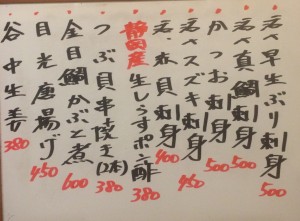 活〆早生ぶり刺身 500
活〆真鯛刺身 500
かつお刺身 500
活〆スズキ刺身 450
活ホヤ貝刺身 400
静岡産生しらすポン酢 380
つぶ貝串焼き(2本) 380
金目鯛かぶと煮 600
目光唐揚げ 450
谷中生姜 380